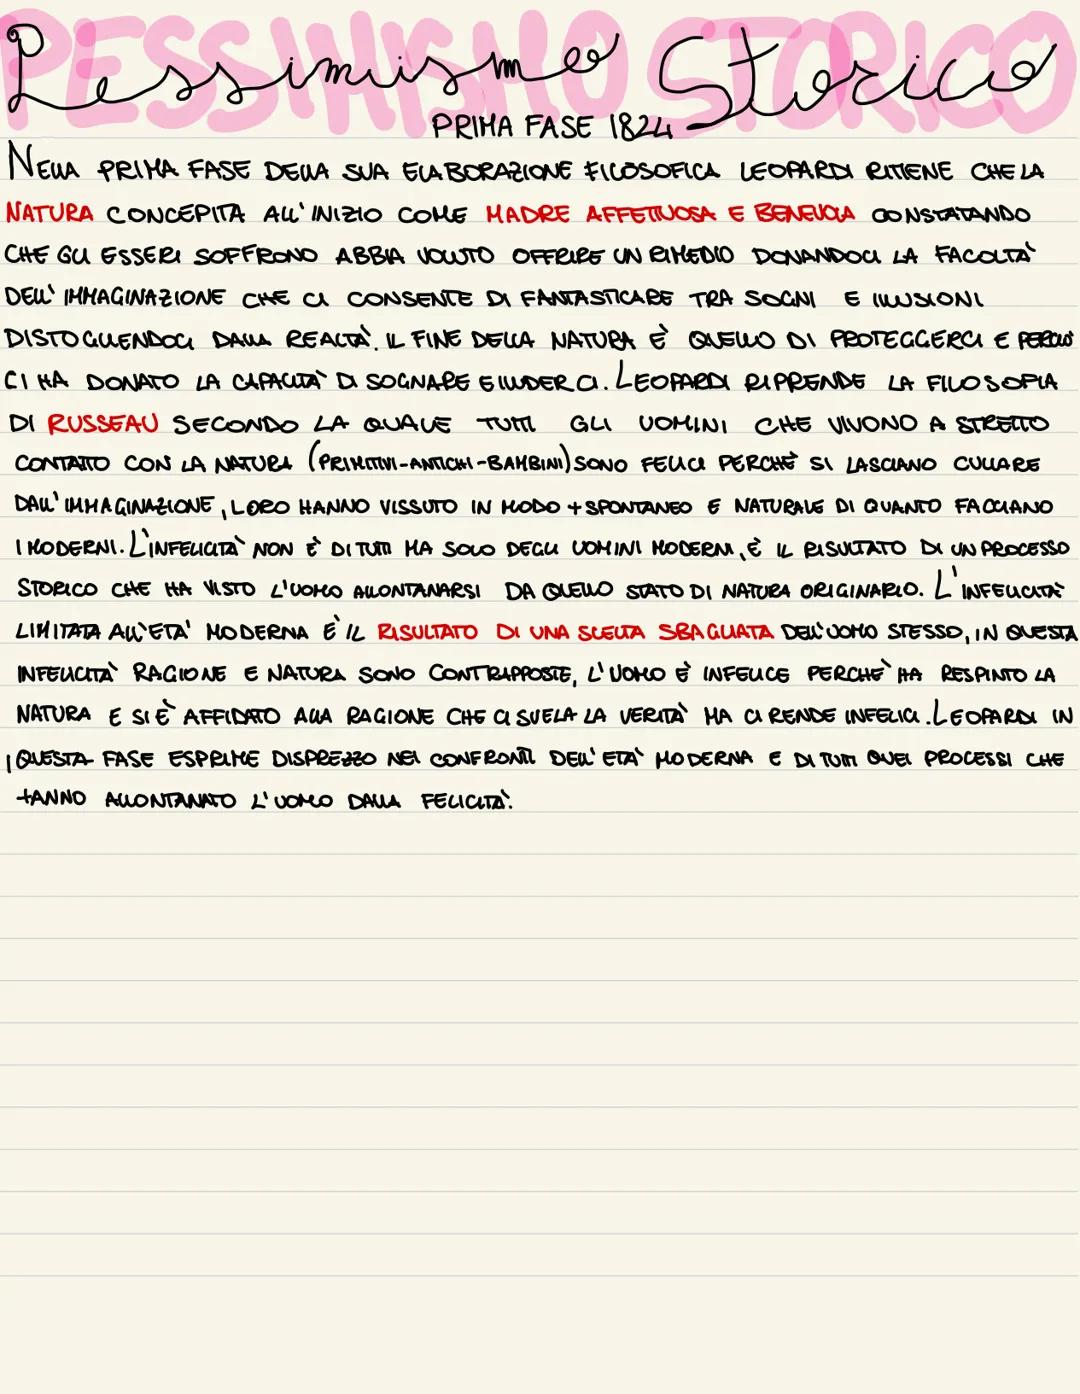 PESSIMISMO STORICO
Pessimismo Storico
PRIMA FASE 1824
NELLA PRIMA FASE DELLA SUA ELABORAZIONE FILOSOFICA LEOPARDI RITIENE CHE LA
NATURA CONCEPITA ALL'INIZIO COME MADRE AFFETTUOSA E BENEVOLA CONSTATANDO
CHE GLI ESSERI SOFFRONO ABBIA VOLUTO OFFRIRE UN RIMEDIO DONANDOCI LA FACOLTÀ
DELL'IMMAGINAZIONE CHE CI CONSENTE DI FANTASTICARE TRA SOGNI E ILLUSIONI
DISTOGLIENDOCI DALLA REALTÀ. IL FINE DELLA NATURA È QUELLO DI PROTEGGERCI E PERCIÒ
CI HA DONATO LA CAPACITÀ DI SOGNARE E ILLUDERCI. LEOPARDI RIPRENDE LA FILOSOFIA
DI RUSSEAU SECONDO LA QUALE TUTTI GLI UOMINI CHE VIVONO A STRETTO
CONTATTO CON LA NATURA (PRIMITIVI-ANTICHI-BAMBINI) SONO FELICI PERCHÈ SI LASCIANO CULLARE
DALL'IMMAGINAZIONE, LORO HANNO VISSUTO IN MODO + SPONTANEO E NATURALE DI QUANTO FACCIANO
I MODERNI. L'INFELICITÀ NON È DI TUTTI MA SOLO DEGLI UOMINI MODERNI, È IL RISULTATO DI UN PROCESSO
STORICO CHE HA VISTO L'UOMO ALLONTANARSI DA QUELLO STATO DI NATURA ORIGINARIO. L'INFELICITÀ
LIMITATA ALL'ETÀ MODERNA È IL RISULTATO DI UNA SCELTA SBAGLIATA DELL'UOMO STESSO, IN QUESTA
INFELICITÀ RAGIONE E NATURA SONO CONTRAPPOSTE, L'UOMO È INFELICE PERCHÈ HA RESPINTO LA
NATURA E SI È AFFIDATO ALLA RAGIONE CHE CI SVELA LA VERITÀ MA CI RENDE INFELICI. LEOPARDI IN
QUESTA FASE ESPRIME DISPREZZO NEI CONFRONTI DELL'ETÀ MODERNA E DI TUTTI QUEI PROCESSI CHE
HANNO ALLONTANATO L'UOMO DALLA FELICITÀ.